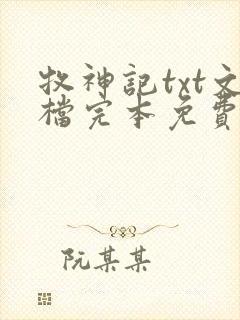 牧神記txt文
檔完本免費
阮某某